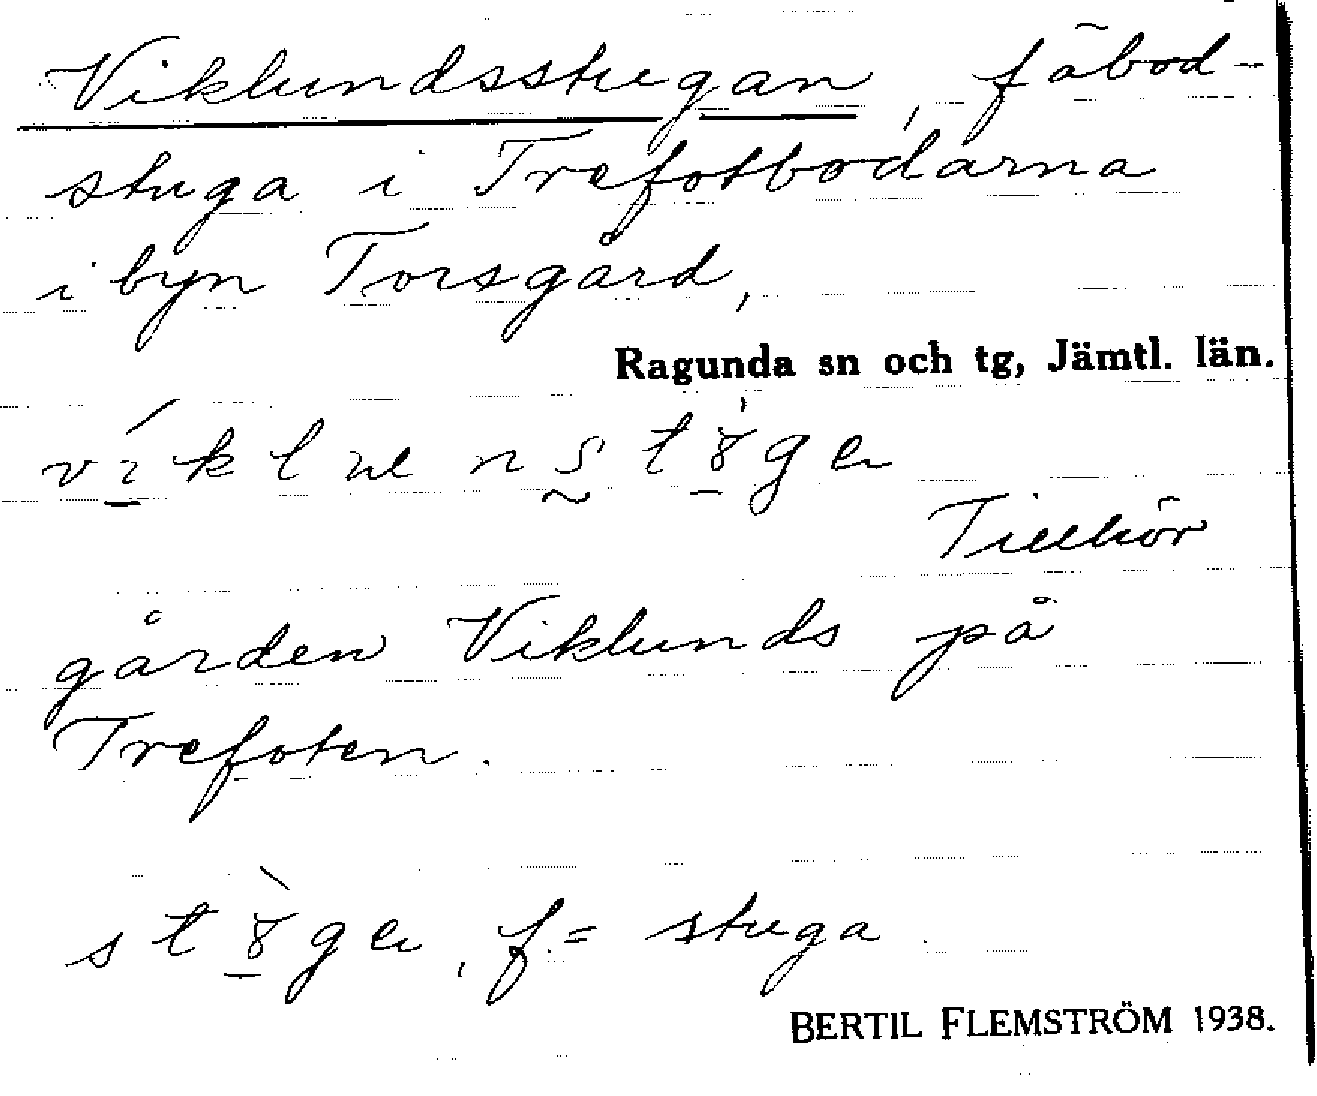 Viklundsstugan, fäbod-
stuga i Trefotbodarna
i byn Torsgård,
Ragunda sn och tg, Jämtl. län.
Tillhör
gården Viklunds på
Trefoten.
f. = stuga.
BERTIL FLEMSTRÖM 1938.